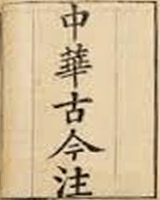 中華古今注